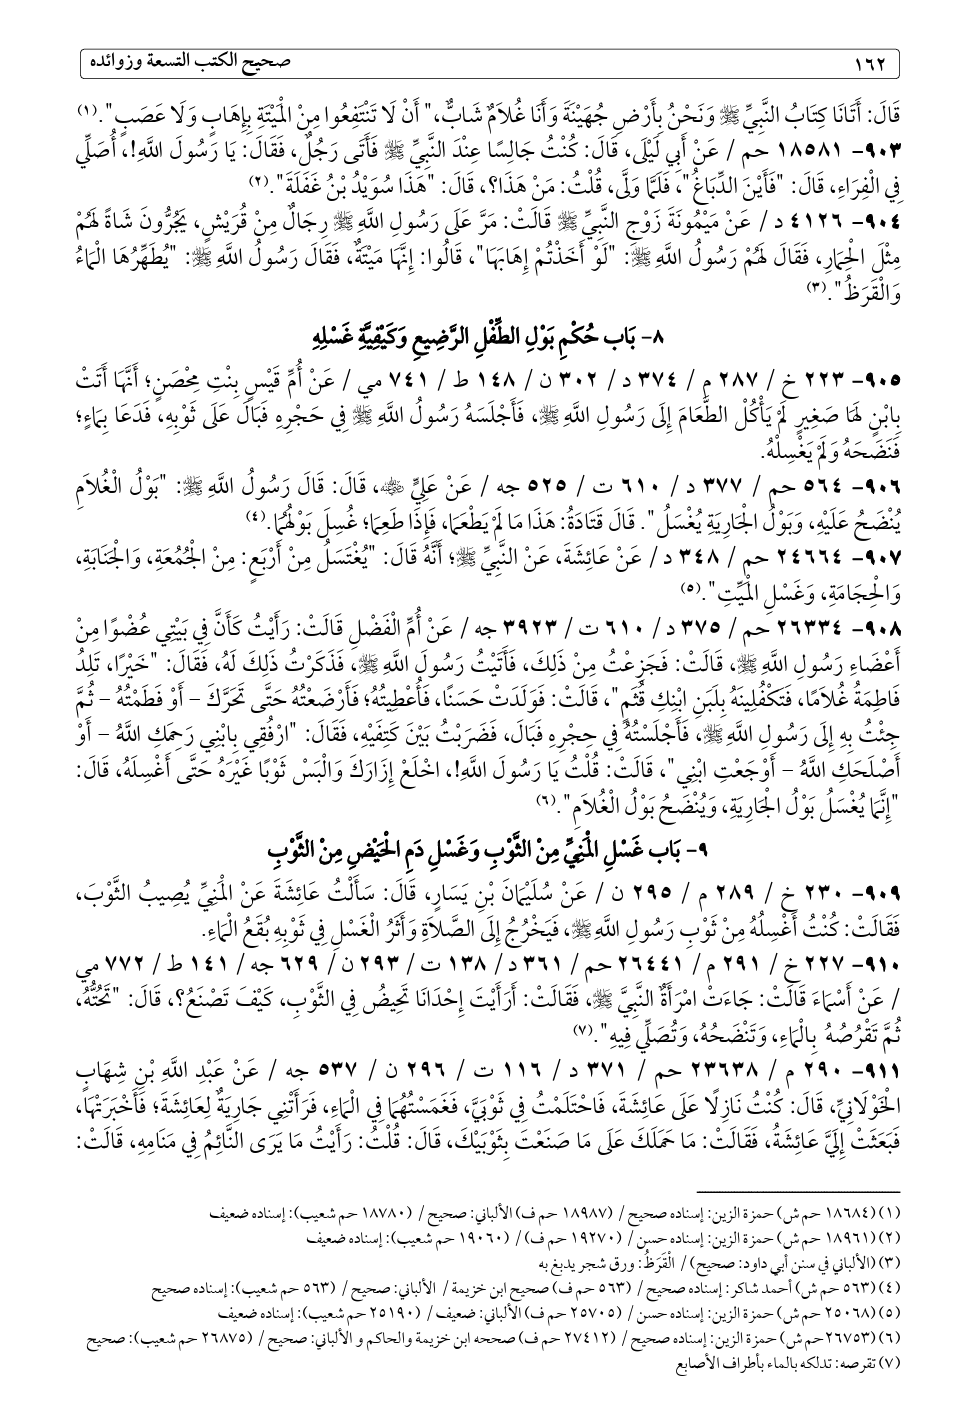 ١٦٢ صحيح الكتب التسعة وزوائده
قَالَ: أَتَانَا كِتَابُ النَّبِيِّ ﷺ وَنَحْنُ بِأَرْضِ جُهَيْنَةَ وَأَنَا غُلَامٌ شَابٌّ، " أَنْ لَا تَنْتَفِعُوا مِنْ الْمَيْتَةِ بِإِهَابٍ وَلَا عَصَبٍ ". (١)
٩٠٣- ١٨٥٨١ حم / عَنْ أَبِي لَيْلَى، قَالَ: كُنْتُ جَالِسًا عِنْدَ النَّبِيِّ ﷺ فَأَتَى رَجُلٌ، فَقَالَ: يَا رَسُولَ اللهِ!، أُصَلِّي
فِي الْفِرَاءِ، قَالَ: "فَأَيْنَ الدِّبَاغُ"، فَلَمَّا وَلَّى، قُلْتُ: مَنْ هَذَا؟، قَالَ: "هَذَا سُوَيْدُ بْنُ غَفَلَةَ". (٢)
٩٠٤- ٤١٢٦ د / عَنْ مَيْمُونَةَ زَوْجِ النَّبِيِّ ﷺ قَالَتْ: مَرَّ عَلَى رَسُولِ اللهِ ﷺ رِجَالٌ مِنْ قُرَيْشٍ، يَجُرُّونَ شَاةً لَهُمْ
مِثْلَ الْحِمَارِ، فَقَالَ لَهُمْ رَسُولُ اللهِ ﷺ: "لَوْ أَخَذْتُمْ إِهَابَهَا"، قَالُوا: إِنَّهَا مَيْتَةٌ، فَقَالَ رَسُولُ اللهِ ﷺ: "يُطَهِّرُهَا الْمَاءُ
وَالْقَرَظُ". (٣)
٨- بَاب حُكْمِ بَوْلِ الطِّفْلِ الرَّضِيعِ وَكَيْفِيَّةِ غَسْلِهِ
٩٠٥- ٢٢٣ خ / ٢٨٧ م / ٣٧٤ د / ٣٠٢ ن / ١٤٨ ط / ٧٤١ مي / عَنْ أُمِّ قَيْسٍ بِنْتِ مِحْصَنٍ؛ أَنَّهَا أَتَتْ
بِابْنٍ لَهَا صَغِيرٍ لَمْ يَأْكُلْ الطَّعَامَ إِلَى رَسُولِ اللهِ ﷺ، فَأَجْلَسَهُ رَسُولُ اللهِ ﷺ فِي حَجْرِهِ فَبَالَ عَلَى ثَوْبِهِ، فَدَعَا بِمَاءٍ؛
فَنَضَحَهُ وَلَمْ يَغْسِلْهُ.
٩٠٦- ٥٦٤ حم / ٣٧٧ د / ٦١٠ ت / ٥٢٥ جه / عَنْ عَلِيٍّ ﵁، قَالَ: قَالَ رَسُولُ اللهِ ﷺ: "بَوْلُ الْغُلَامِ
يُنْضَحُ عَلَيْهِ، وَبَوْلُ الْجَارِيَةِ يُغْسَلُ". قَالَ قَتَادَةُ: هَذَا مَا لَمْ يَطْعَمَا، فَإِذَا طَعِمَا؛ غُسِلَ بَوْلُهُمَا. (٤)
٩٠٧- ٢٤٦٦٤ حم / ٣٤٨ د/ عَنْ عَائِشَةَ، عَنْ النَّبِيِّ ﷺ؛ أَنَّهُ قَالَ: "يُغْتَسَلُ مِنْ أَرْبَعٍ: مِنْ الْجُمُعَةِ، وَالْجَنَابَةِ،
وَالْحِجَامَةِ، وَغَسْلِ الْمَيِّتِ". (٥)
٩٠٨- ٢٦٣٣٤ حم / ٣٧٥ د/ ٦١٠ ت / ٣٩٢٣ جه / عَنْ أُمِّ الْفَضْلِ قَالَتْ: رَأَيْتُ كَأَنَّ فِي بَيْتِي عُضْوًا مِنْ
أَعْضَاءِ رَسُولِ اللهِ ﷺ، قَالَتْ: فَجَزِعْتُ مِنْ ذَلِكَ، فَأَتَيْتُ رَسُولَ اللهِ ﷺ، فَذَكَرْتُ ذَلِكَ لَهُ، فَقَالَ: "خَيْرًا، تَلِدُ
فَاطِمَةُ غُلَامًا، فَتَكْفُلِينَهُ بِلَبَنِ ابْنِكِ قُثَمٍ"، قَالَتْ: فَوَلَدَتْ حَسَنًا، فَأُعْطِيتُهُ؛ فَأَرْضَعْتُهُ حَتَّى تَحَرَّكَ – أَوْ فَطَمْتُهُ – ثُمَّ
جِئْتُ بِهِ إِلَى رَسُولِ اللهِ ﷺ، فَأَجْلَسْتُهُ فِي حِجْرِهِ فَبَالَ، فَضَرَبْتُ بَيْنَ كَتِفَيْهِ، فَقَالَ: "ارْفُقِي بِابْنِي رَحِمَكِ اللهُ – أَوْ
أَصْلَحَكِ اللهُ – أَوْجَعْتِ ابْنِي"، قَالَتْ: قُلْتُ يَا رَسُولَ اللهِ!، اخْلَعْ إِزَارَكَ وَالْبَسْ ثَوْبًا غَيْرَهُ حَتَّى أَغْسِلَهُ، قَالَ:
"إِنَّمَا يُغْسَلُ بَوْلُ الْجَارِيَةِ، وَيُنْضَحُ بَوْلُ الْغُلَامِ". (٦)
٩- بَاب غَسْلِ الْمَنِيِّ مِنْ الثَّوْبِ وَغَسْلِ دَمِ الْحَيْضِ مِنْ الثَّوْبِ
٩٠٩- ٢٣٠ خ / ٢٨٩ م / ٢٩٥ ن / عَنْ سُلَيْمَانَ بْنِ يَسَارٍ، قَالَ: سَأَلْتُ عَائِشَةَ عَنْ الْمَنِيِّ يُصِيبُ الثَّوْبَ،
فَقَالَتْ: كُنْتُ أَغْسِلُهُ مِنْ ثَوْبِ رَسُولِ اللهِ ﷺ، فَيَخْرُجُ إِلَى الصَّلَاةِ وَأَثَرُ الْغَسْلِ فِي ثَوْبِهِ بُقَعُ الْمَاءِ.
٩١٠- ٢٢٧ خ / ٢٩١ م / ٢٦٤٤١ حم / ٣٦١ د/ ١٣٨ ت / ٢٩٣ ن / ٦٢٩ جه / ١٤١ ط / ٧٧٢ مي
/ عَنْ أَسْمَاءَ قَالَتْ: جَاءَتْ امْرَأَةٌ النَّبِيَّ ﷺ، فَقَالَتْ: أَرَأَيْتَ إِحْدَانَا تَحِيضُ فِي الثَّوْبِ، كَيْفَ تَصْنَعُ؟، قَالَ: "تَحُتُّهُ،
ثُمَّ تَقْرُصُهُ بِالْمَاءِ، وَتَنْضَحُهُ، وَتُصَلِّي فِيهِ". (٧)
٩١١- ٢٩٠ م / ٢٣٦٣٨ حم / ٣٧١ د / ١١٦ ت / ٢٩٦ ن / ٥٣٧ جه / عَنْ عَبْدِ اللهِ بْنِ شِهَابٍ
الْخَوْلَانِيِّ، قَالَ: كُنْتُ نَازِلًا عَلَى عَائِشَةَ، فَاحْتَلَمْتُ فِي ثَوْبَيَّ، فَغَمَسْتُهُمَا فِي الْمَاءِ، فَرَأَتْنِي جَارِيَةٌ لِعَائِشَةَ؛ فَأَخْبَرَتْهَا،
فَبَعَثَتْ إِلَيَّ عَائِشَةُ، فَقَالَتْ: مَا حَمَلَكَ عَلَى مَا صَنَعْتَ بِثَوْبَيْكَ، قَالَ: قُلْتُ: رَأَيْتُ مَا يَرَى النَّائِمُ فِي مَنَامِهِ، قَالَتْ:
(١) (١٨٦٨٤ حم ش) حمزة الزين: إسناده صحيح / (١٨٩٨٧ حم ف) الألباني: صحيح / (١٨٧٨٠ حم شعيب): إسناده ضعيف
(٢) (١٨٩٦١ حم ش) حمزة الزين: إسناده حسن / (١٩٢٧٠ حم ف) / (١٩٠٦٠ حم شعيب): إسناده ضعيف
(٣) (الألباني في سنن أبي داود: صحيح) / الْقَرَظُ: ورق شجر يدبغ به
(٤) (٥٦٣ حم ش) أحمد شاكر: إسناده صحيح / (٥٦٣ حم ف) صحيح ابن خزيمة / الألباني: صحيح / (٥٦٣ حم شعيب): إسناده صحيح
(٥) (٢٥٠٦٨ حم ش) حمزة الزين: إسناده حسن / (٢٥٧٠٥ حم ف) الألباني: ضعيف / (٢٥١٩٠ حم شعيب): إسناده ضعيف
(٦) (٢٦٧٥٣ حم ش) حمزة الزين: إسناده صحيح / (٢٧٤١٢ حم ف) صححه ابن خزيمة والحاكم و الألباني: صحيح / (٢٦٨٧٥ حم شعيب): صحيح
(٧) تقرصه: تدلكه بالماء بأطراف الأصابع